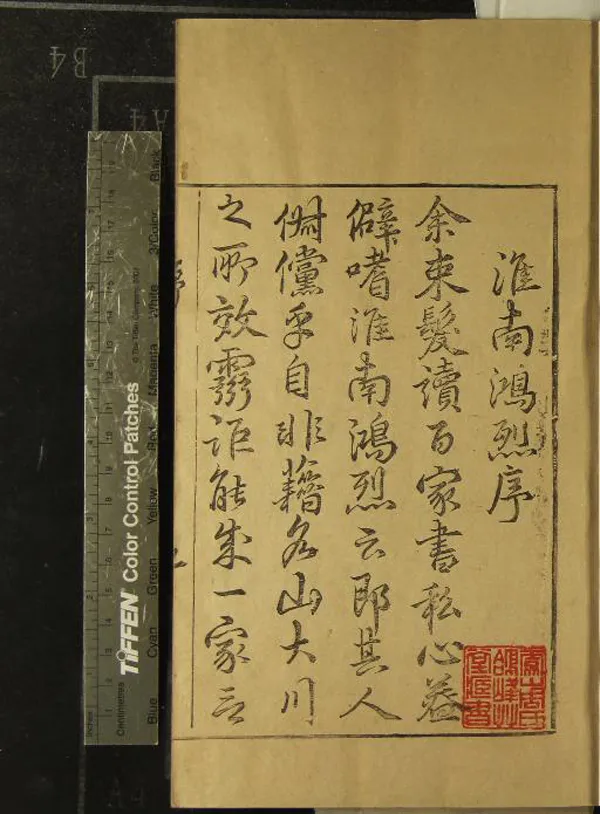 淮南鴻烈序
余束髮讀百家書私心益
僻嗜淮南鴻烈云即其人
倜儻乎自非藉名山大川
之所效靈詎能成一家言
B4
A4
TIFFEN Color Control Patches
© The Tiffen Company, 2007
Inches
Centimetres
Blue Cyan Green Yellow Red Magenta White 3/Color Black